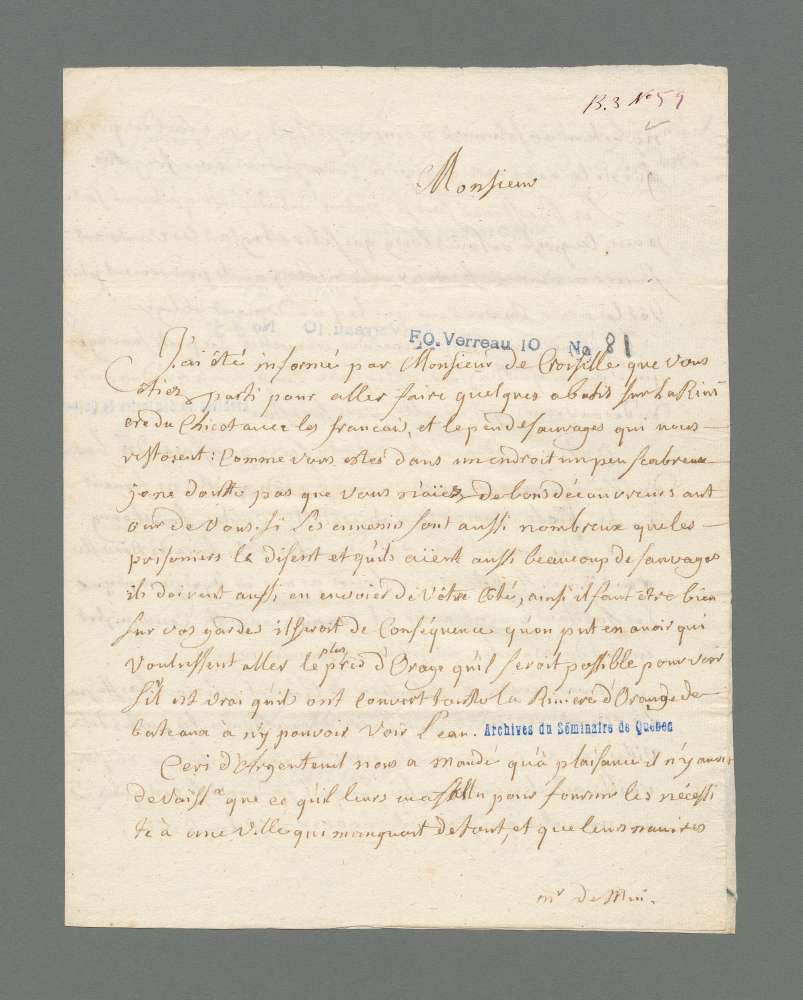 B.3 No 59
Monsieur
F.O. Verreau 10 No 81
J'ai été informé par Monsieur de Croisille que vous
étiez parti pour aller faire quelques abatis sur La Rivi
ere du Chicot avec les francais, et le peu de sauvages qui nous
restoient: Comme vous estes dans un endroit un peu scabreux
je ne doutte pas que vous n'aïez de bons découvreurs aut
our de Vous. si Les ennemis sont aussi nombreux que les
prisoniers le disent et qu'ils aïent aussi beaucoup de sauvages
ils doivent aussi en envoier de Vôtre Côté, ainsi il faut être bien
sur vos gardes il seroit de Conséquence qu'on put en avoir qui
voulussent aller le plus près d'Orage qu'il seroit possible pour voir
s'il est vrai qu'ils ont couvert toutte la Riviere d'Orange de
bateaux à n'y pouvoir voir L'eau. Archives du Séminaire de Québec
Ceri d'Argenteuil nous a mandé qu'à plaisance il n'y avoit
de Vaisse^x que ce qu'il leurs en a fallu pour fournir les nécessi
té à une Ville qui manquoit de tout, et que leurs navires
m^r de Mui.